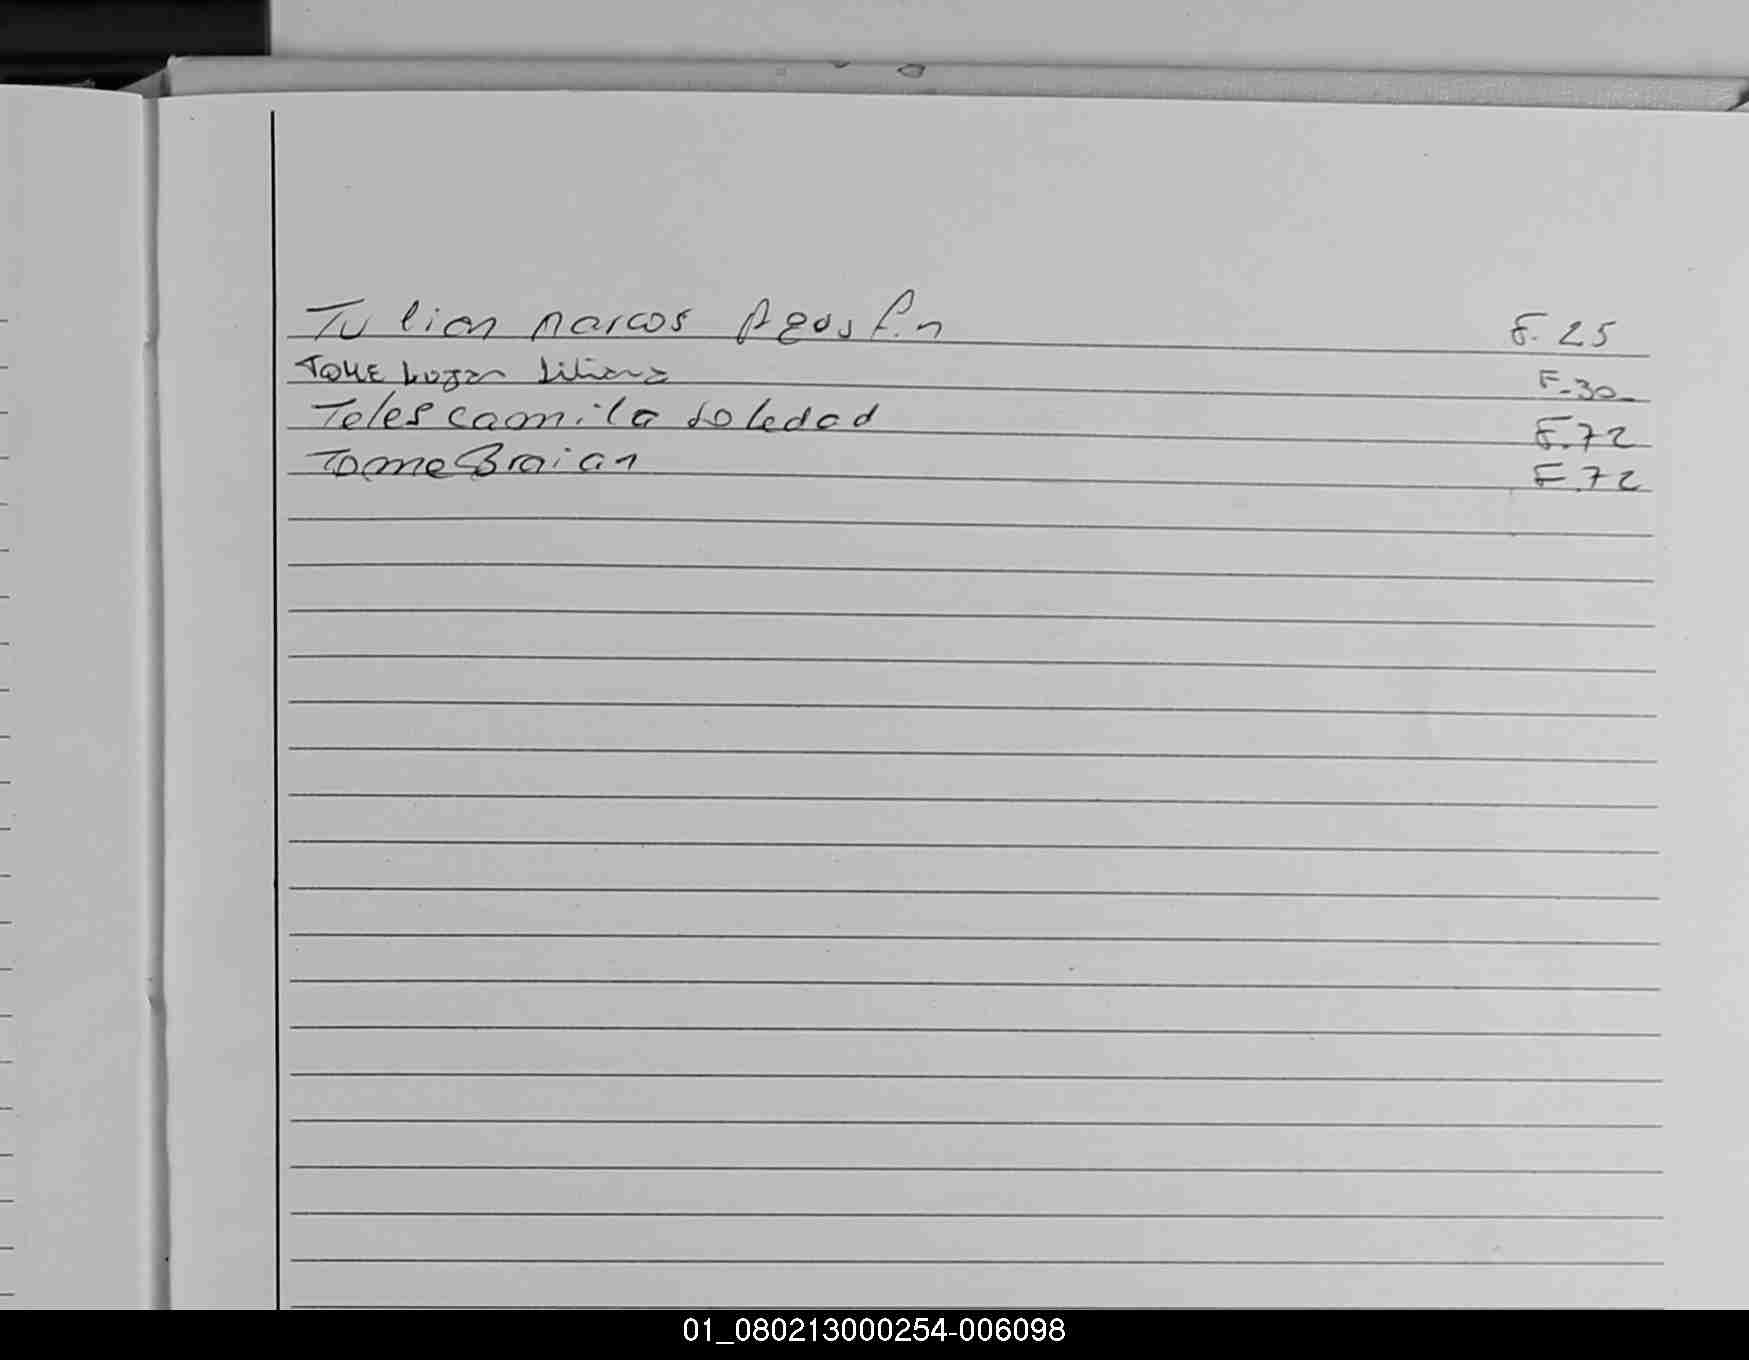 Tulian Marcos Agostin F. 25
Tome Lujan Liliana F-30
Teles Camila Soledad F.72
Tome Braian F.72
01_080213000254-006098